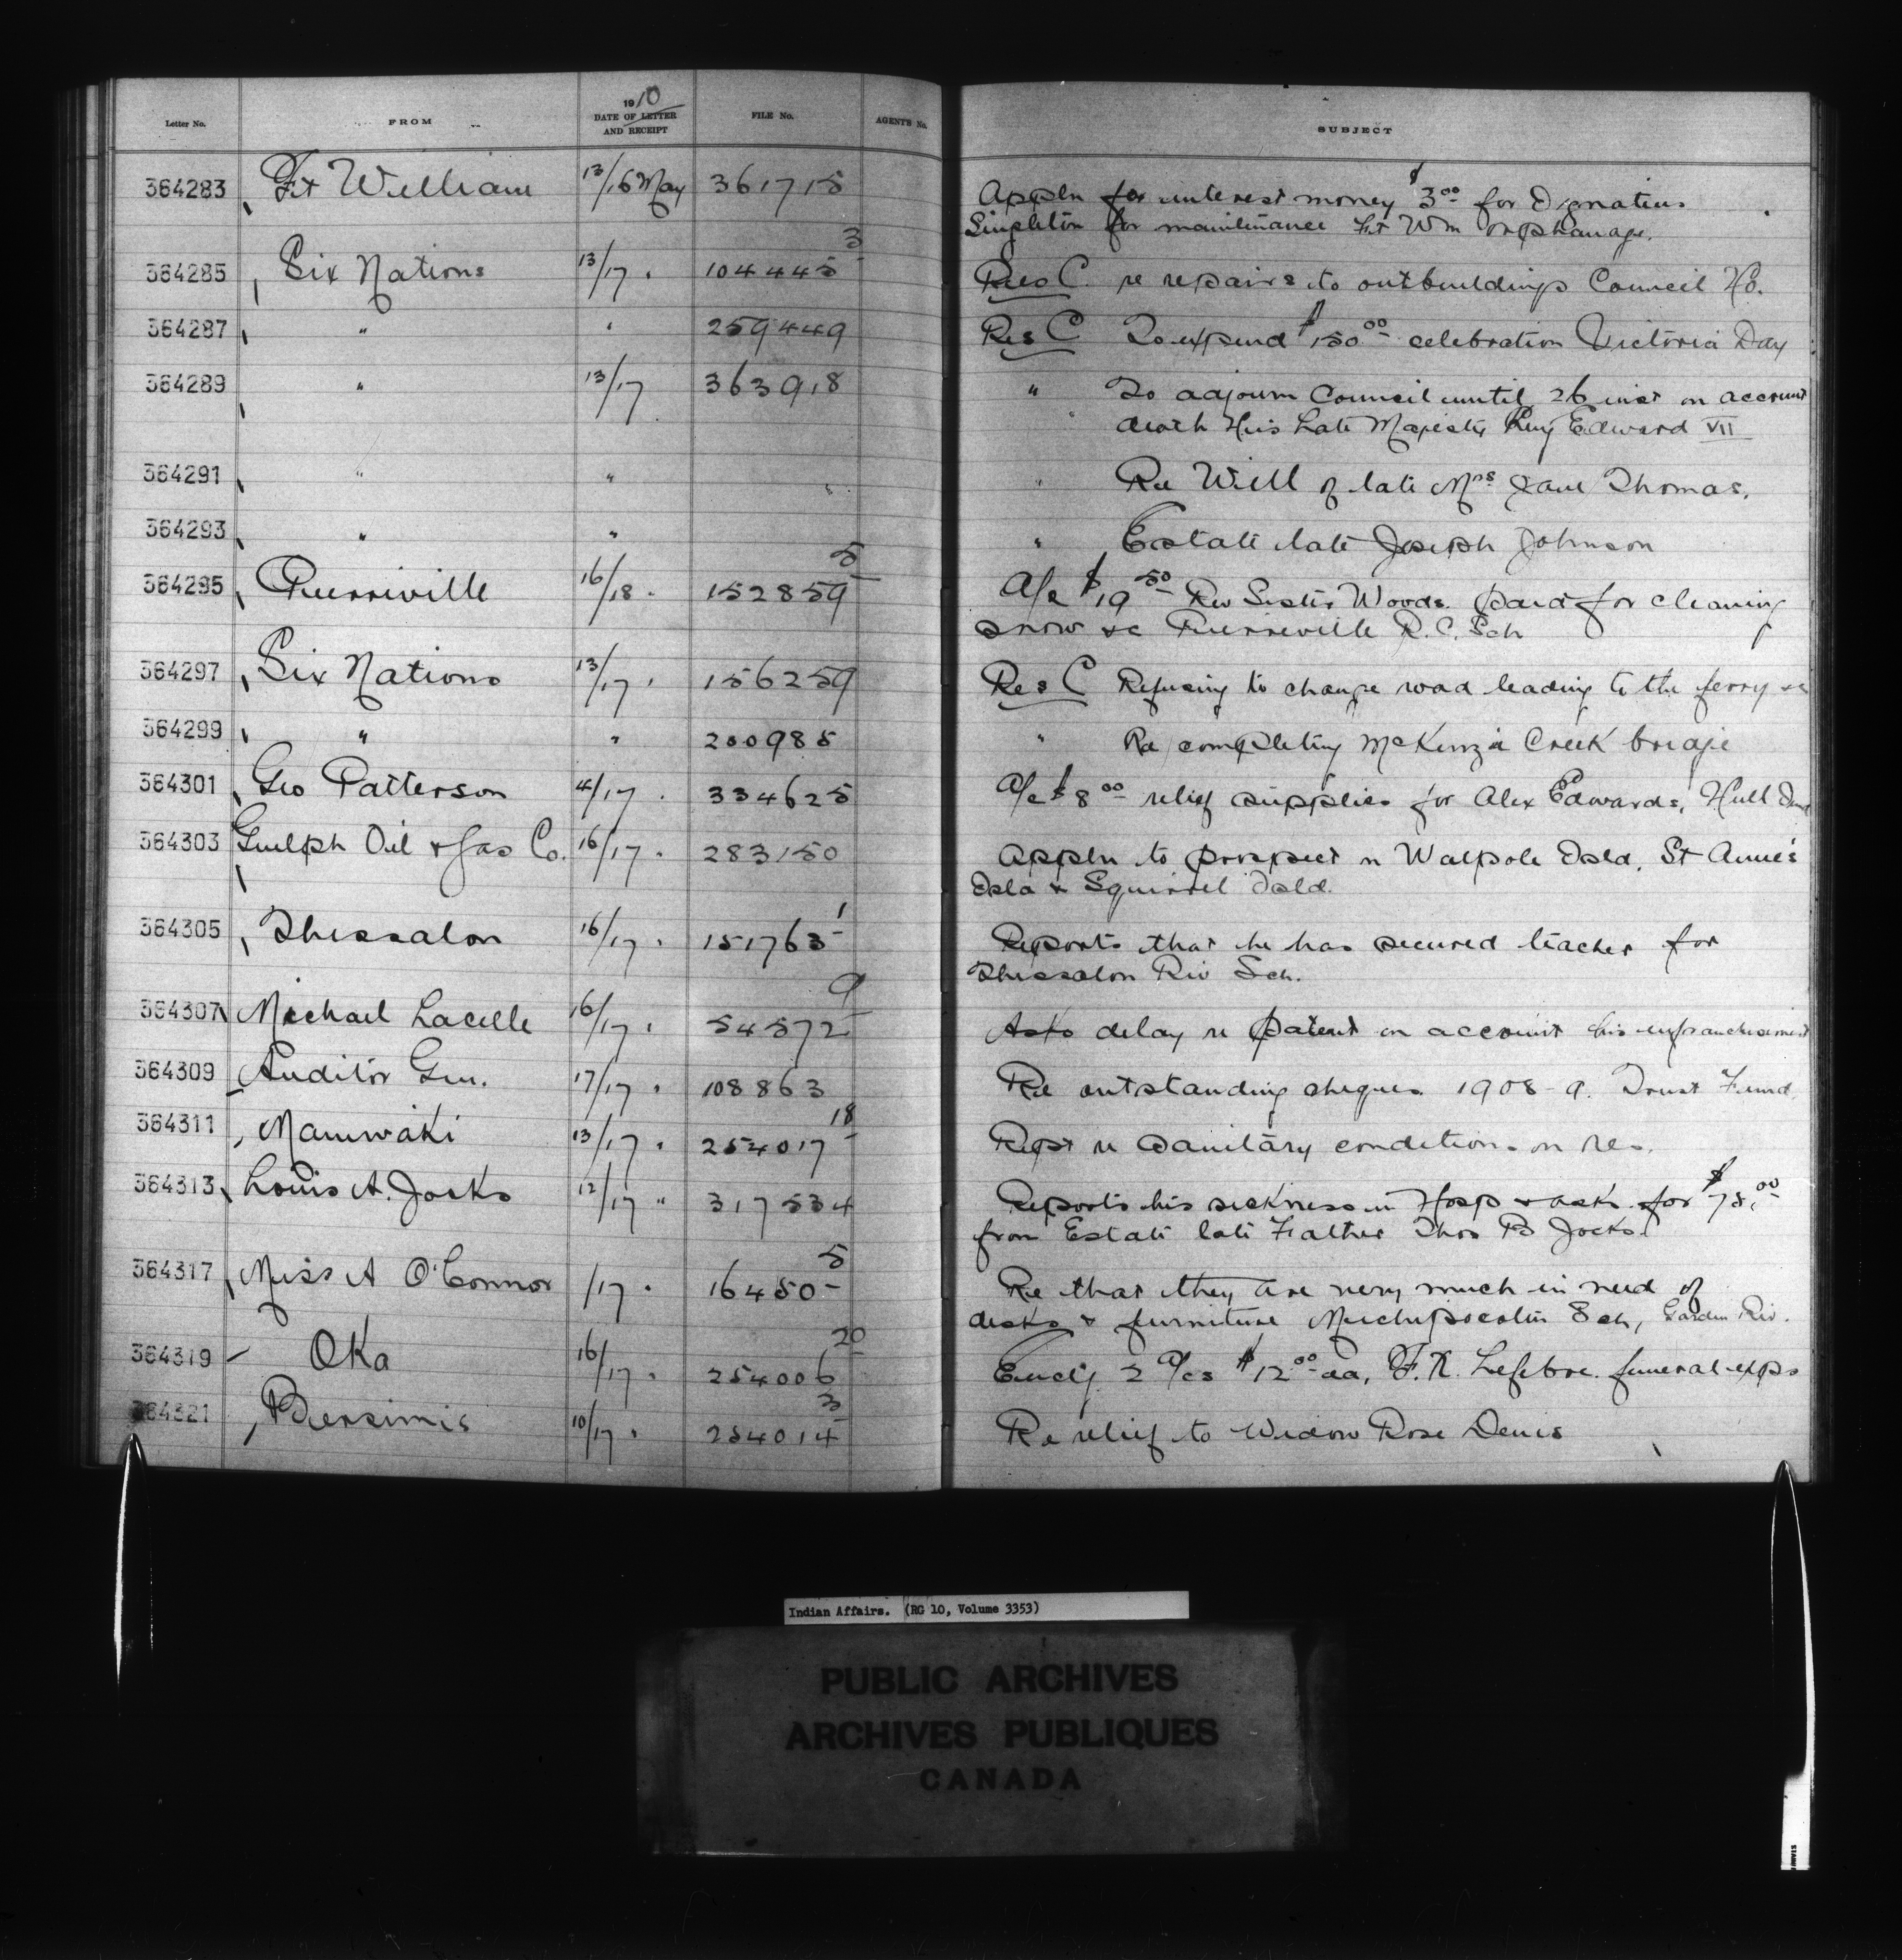 Letter No. FROM 1910 DATE OF LETTER AND RECEIPT FILE No. AGENT'S No. SUBJECT
364283 Ft William 13/16 May 361715 Appln for interest money $3.00 for Ignatius
Singleton for maintenance Ft Wm orphanage.
364285 Six Nations 13/17 " 104445-3 Res C. re repairs to outbuildings Council Ho.
364287 " " 259449 Res C To expend $150.00 celebration Victoria Day
364289 " 13/17 363918 " To adjourn Council until 26 inst on account
death His Late Majesty King Edward VII
364291 " " " " Re Will of late Mrs Jane Thomas.
364293 " " " Estate late Joseph Johnson
364295 Pierreville 16/18 " 152859-5 A/c $19.50 Rev Sister Woods. paid for cleaning
snow &c Pierreville R.C. Sch
364297 Six Nations 13/17 " 156259 Res C Refusing to change road leading to the ferry &c
364299 " " 200985 " Re completing McKenzie Creek bridge
364301 Geo Patterson 4/17 " 334625 A/c $8.00 relief supplies for Alex Edwards, Hull
364303 Guelph Oil & Gas Co. 16/17 " 283150 Appln to prospect on Walpole Isld, St Anne's
Isld & Squirrel Isld.
364305 Thessalon 16/17 " 151763-1 Reports that he has secured teacher for
Thessalon Riv Sch.
364307 Michael Lacelle 16/17 " 54572-9 Asks delay re patent on account his enfranchisement
364309 Auditor Gen. 17/17 " 108863 Re outstanding cheques 1908-9. Trust Fund.
364311 Maniwaki 13/17 " 254017-18 Rept re sanitary conditions on res.
364313 Louis A. Jocks 12/17 " 317534 Reports his sickness in Hosp & asks for $78.00
from Estate late Father Thos B Jocks.
364317 Miss A O'Connor /17 " 16450-5 Re that they are very much in need of
desks & furniture Michipocoten Sch, Garden Riv.
364319 Oka 16/17 " 254006-20 Encl'g 2 A/cs $12.00 ea, F.X. Lefebvre funeral exps
364321 Bersimis 10/17 " 254014-3 Re relief to Widow Rose Denis
Indian Affairs. (RG 10, Volume 3353)
PUBLIC ARCHIVES
ARCHIVES PUBLIQUES
CANADA